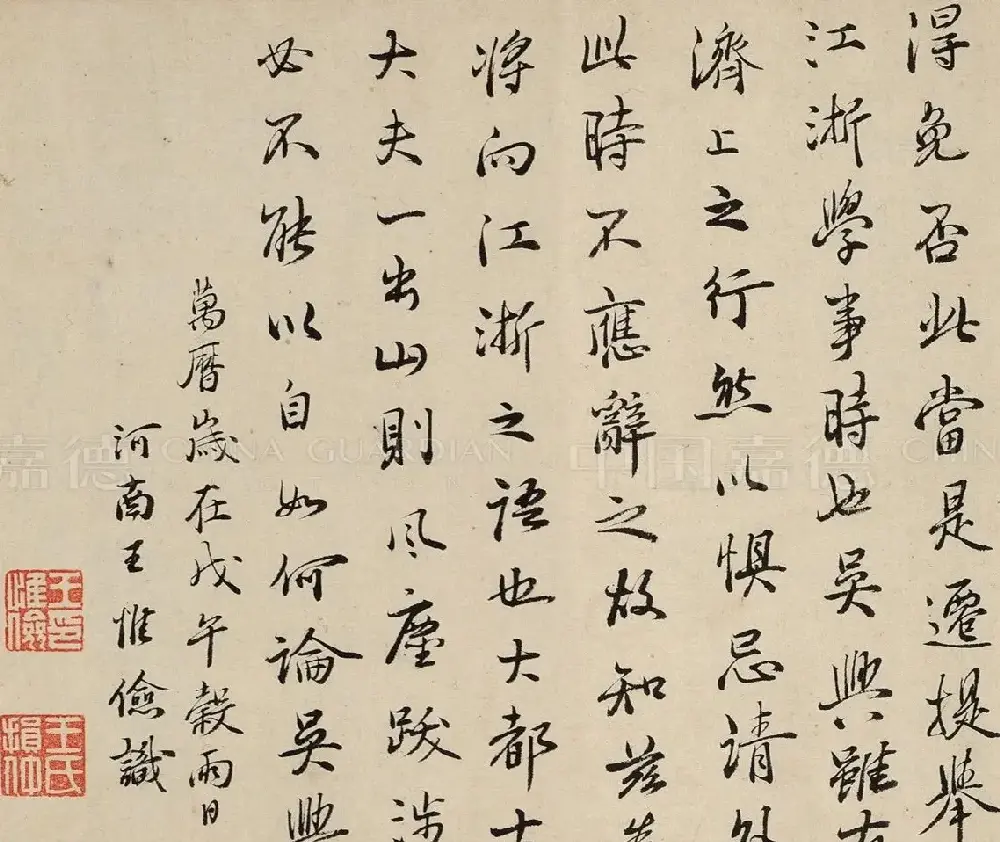 得免否此當是遷提舉
江浙學事時也吳興雖有
濟上之行然以惧忌請外
此時不應辭之故知茲
將向江浙之語也大都士
大夫一出山則風塵跋涉
必不能以自如何論吳興
萬曆歲在戊午穀雨日
河南王惟儉識
王印惟儉
王氏損仲
嘉德 CHINA GUARDIAN 中国嘉德